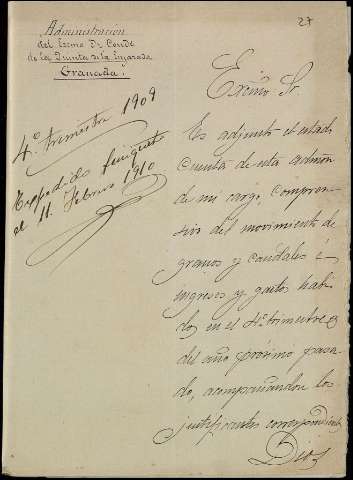 27
Administración
del Excmo Sr. Conde
de la Quinta de la Enjarada
Granada.
4º trimestre 1909
el 11 Febrero 1910
Excmo Sr.
Es adjunto el estado
cuenta de esta admón
de mi cargo, compren-
sivo del movimiento de
granos y caudales é
ingresos y gastos habi-
dos en el 4º trimestre
del año próximo pasa-
do, acompañandou los
justificantes correspondientes
Dios